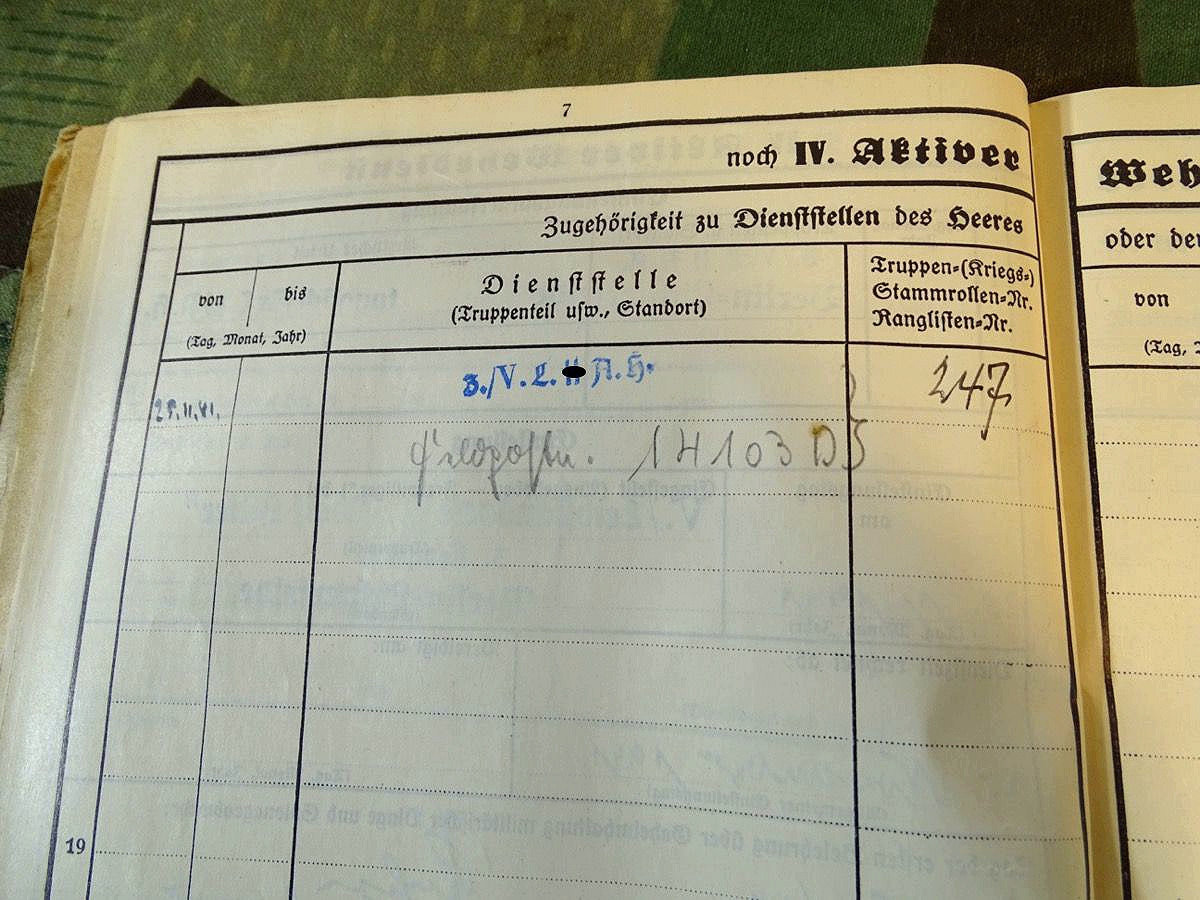 7
noch IV. Aktiver
Weh
Zugehörigkeit zu Dienststellen des Heeres
oder der
von
bis
(Tag, Monat, Jahr)
Dienststelle
(Truppenteil usw., Standort)
Truppen-(Kriegs-)
Stammrollen-Nr.
Ranglisten-Nr.
von
(Tag,
3./V. L. A. H.
247
Feldpostn. 14103
19